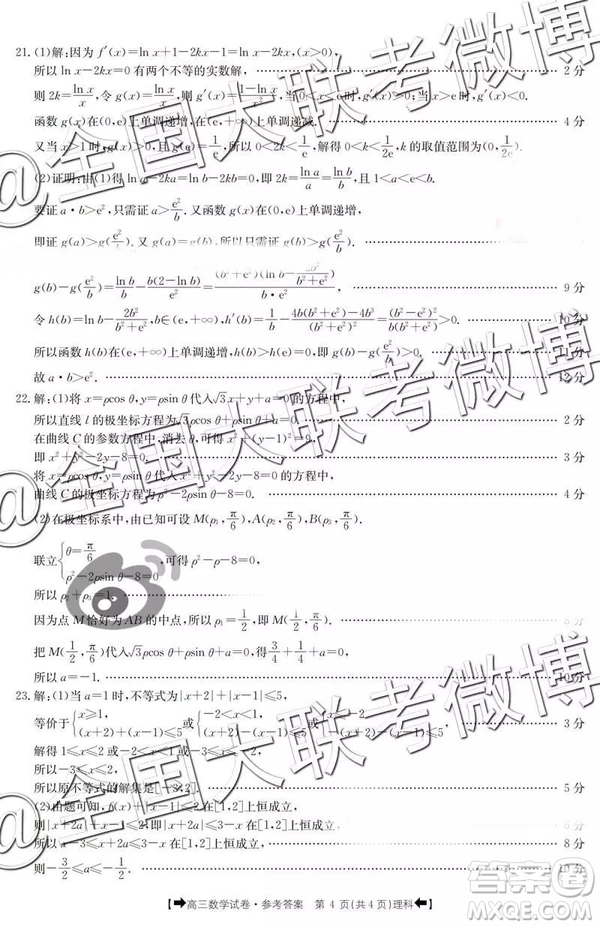 21. (1)解:因为 f′(x)=ln x+1-2kx-1=ln x-2kx,(x>0),
所以 ln x-2kx=0 有两个不等的实数解, 2 分
则 2k=ln x/x,令 g(x)=ln x/x,则 g′(x)=(1-ln x)/x²,当 0<x<e 时,g′(x)>0,当 x>e 时,g′(x)<0.
函数 g(x)在(0,e)上单调递增,在(e,+∞)上单调递减. 4 分
又当 x>1 时,g(x)>0,且 g(e)=1/e,所以 0<2k<1/e,解得 0<k<1/2e,k 的取值范围为(0,1/2e).
(2)证明:由(1)得 ln a-2ka=ln b-2kb=0,即 2k=ln a/a=ln b/b,
要证 a·b>e²,只需证 a>e²/b. 又函数 g(x)在(0,e)上单调递增,
即证 g(a)>g(e²/b). 又 g(a)=g(b),所以只需证 g(b)>g(e²/b).
g(b)-g(e²/b)=ln b/b-b(2-ln b)/e²=(b²+e²)(ln b-2b²/(b²+e²))/(b·e²), 9 分
令 h(b)=ln b-2b²/(b²+e²),b∈(e,+∞),h′(b)=1/b-(4b(b²+e²)-4b³)/(b²+e²)²=(b²-e²)²/(b(b²+e²)²)>0. 10 分
所以函数 h(b)在 b∈(e,+∞)上单调递增, 11 分
故 a·b>e². 12 分
22. 解:(1)将 x=ρcos θ,y=ρsin θ代入√3x+y+a=0 的方程中,
所以直线 l 的极坐标方程为√3ρcos θ+ρsin θ+a=0. 2 分
在曲线 C 的参数方程中,消去θ,可得 x²+(y-1)²=9,
即 x²+y²-2y-8=0, 3 分
将 x=ρcos θ,y=ρsin θ代入 x²+y²-2y-8=0 的方程中,
曲线 C 的极坐标方程为ρ²-2ρsin θ-8=0. 4 分
(2)在极坐标系中,由已知可设 M(ρ₁,π/6),A(ρ₂,π/6),B(ρ₃,π/6).
联立{θ=π/6 ρ²-2ρsin θ-8=0,可得 ρ²-ρ-8=0,
所以 ρ₂+ρ₃=1.
因为点 M 恰好为 AB 的中点,所以 ρ₁=1/2,即 M(1/2,π/6). 8 分
把 M(1/2,π/6)代入√3ρcos θ+ρsin θ+a=0,得 3/4+1/4+a=0,
所以 a=-1. 10 分
23. 解:(1)当 a=1 时,不等式为|x+2|+|x-1|≤5,
等价于{x≥1,(x+2)+(x-1)≤5或{-2<x<1,(x+2)-(x-1)≤5或{x≤-2,-(x+2)-(x-1)≤5, 3 分
解得 1≤x≤2 或-2<x<1 或-3≤x≤-2,
所以-3≤x≤2,
所以原不等式的解集是[-3,2]. 5 分
(2)由题可知,f(x)+|x-1|≤2 在[1,2]上恒成立,
则|x+2a|+x-1≤2 即|x+2a|≤3-x 在[1,2]上恒成立, 6 分
所以 x-3≤x+2a≤3-x 在[1,2]上恒成立, 8 分
则-3/2≤a≤-1/2. 10 分
高三数学试卷·参考答案 第 4 页(共 4 页)理科
@全国大联考微博
@全国大联考微博
@全国大联考微博